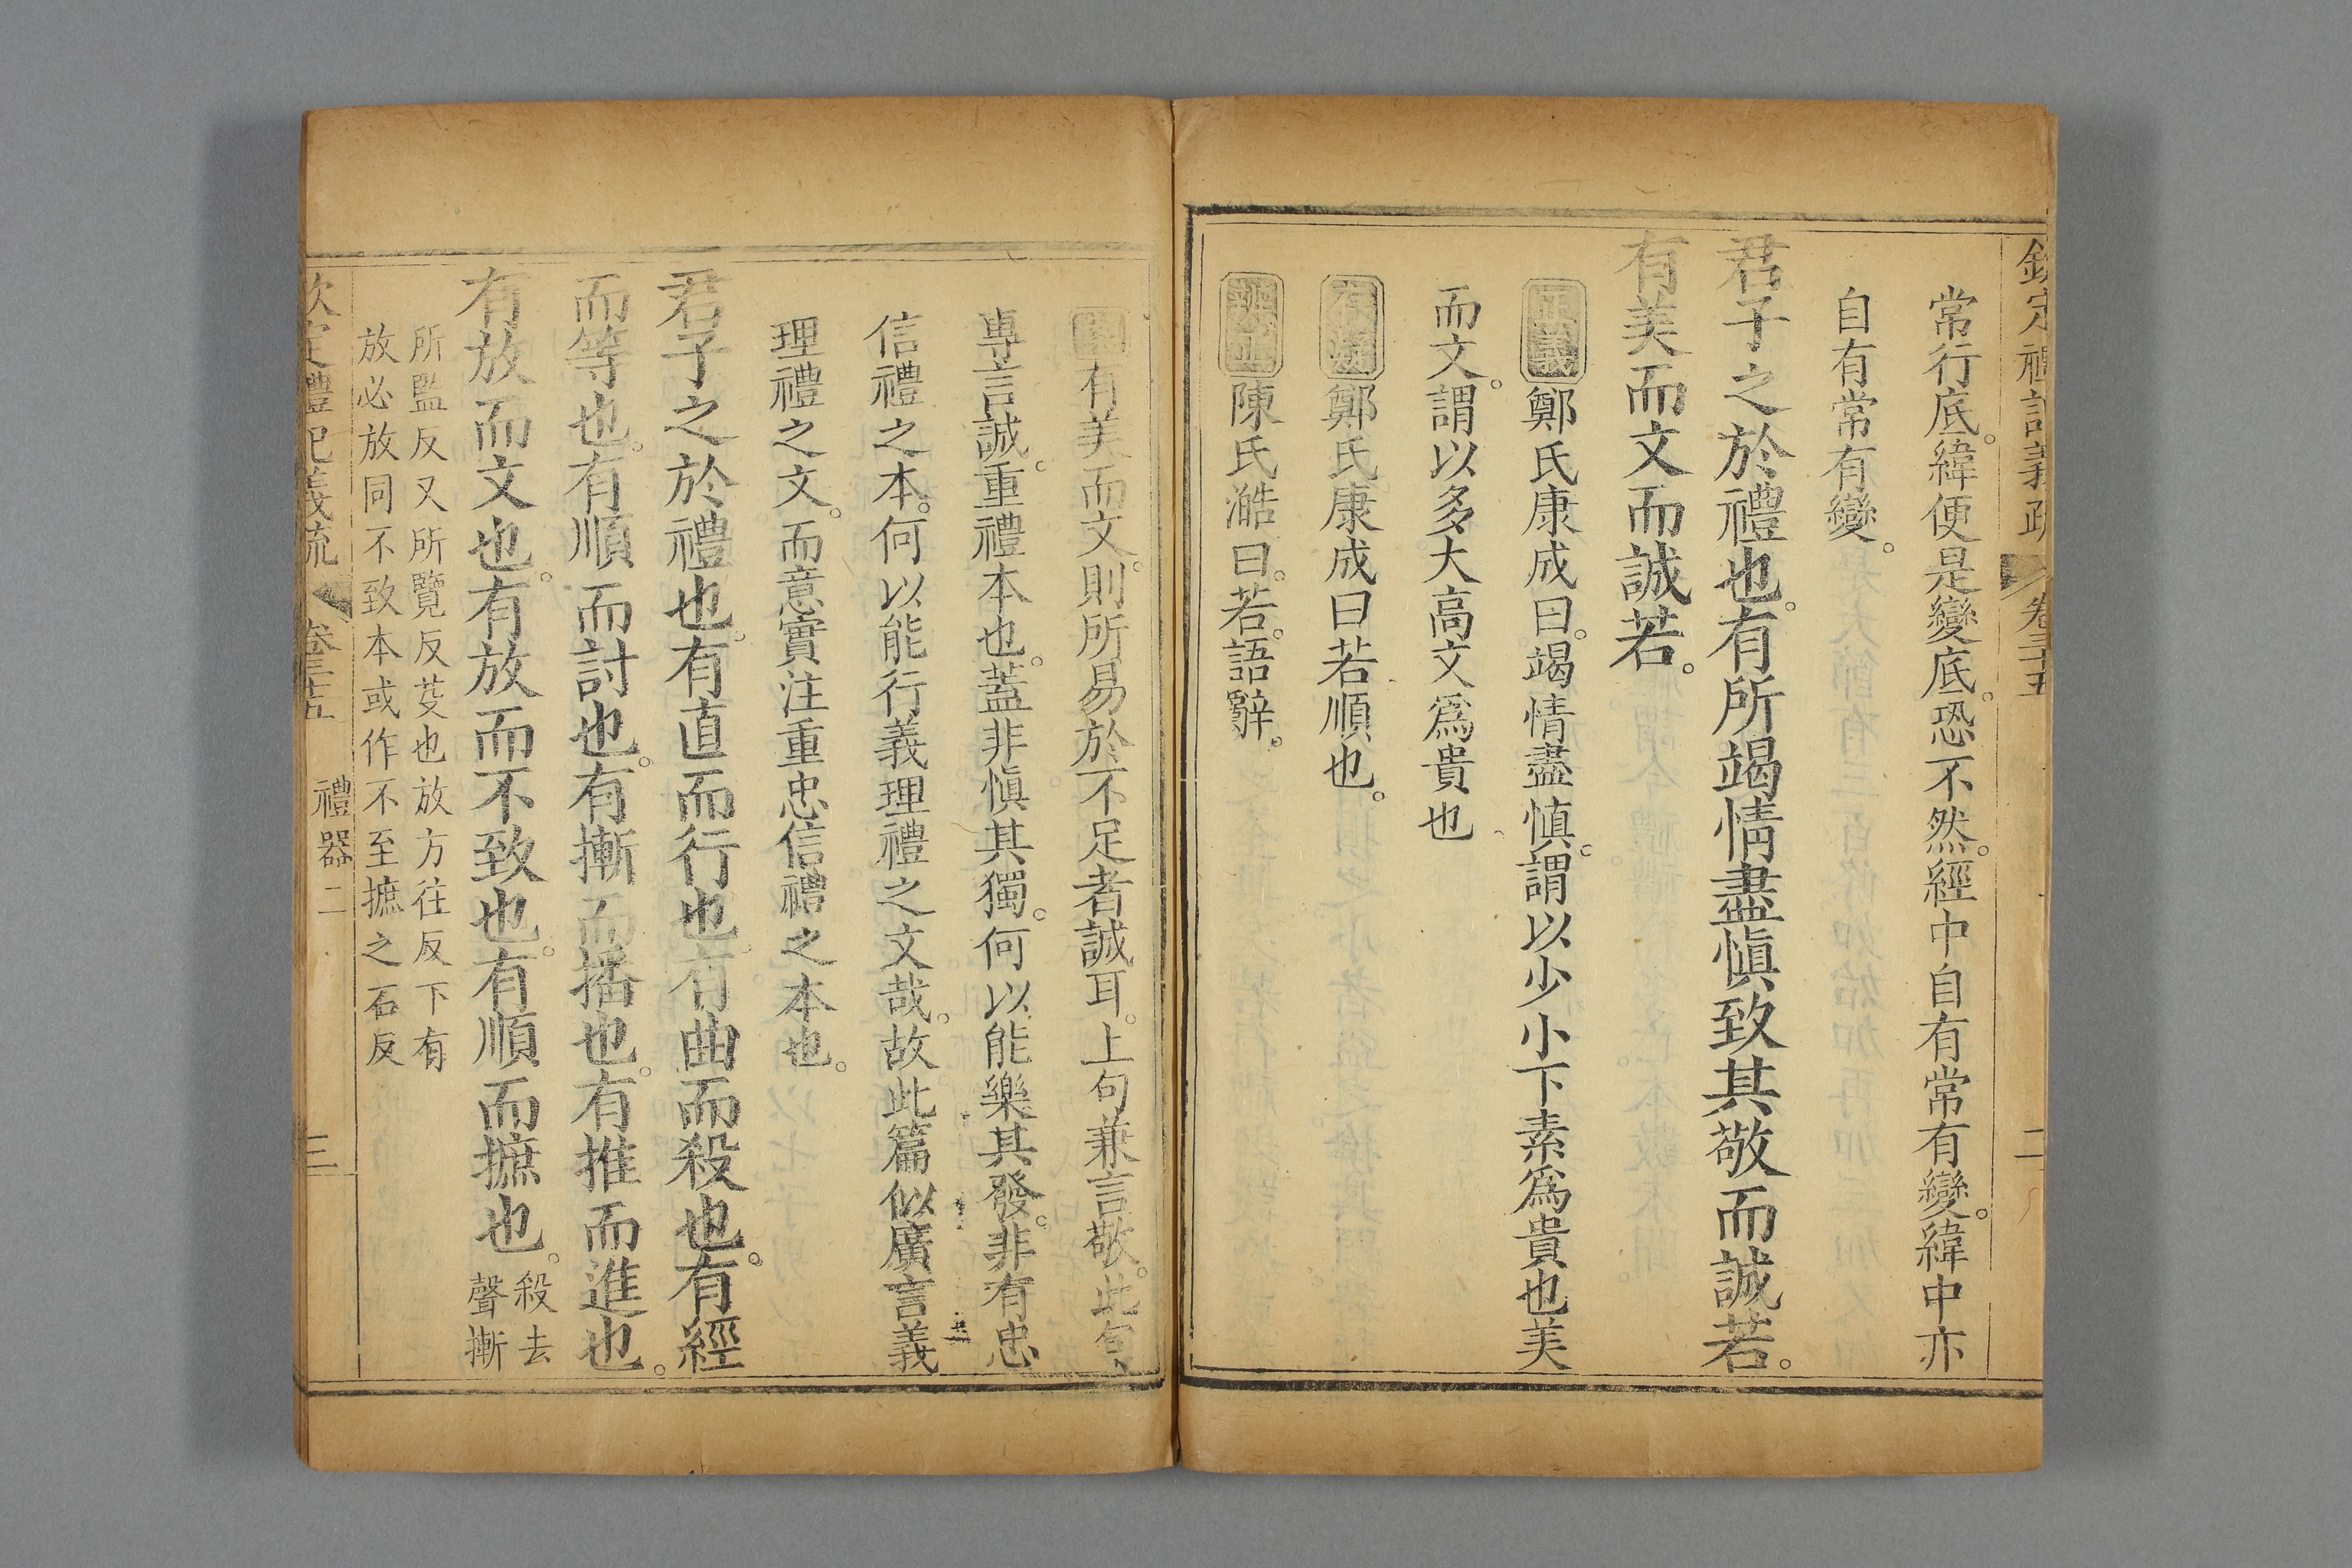 欽定禮記義疏 卷三十五 二
常行底緯便是變底恐不然經中自有常有變緯中亦
自有常有變
君子之於禮也有所竭情盡愼致其敬而誠若
有美而文而誠若
正義鄭氏康成曰竭情盡慎謂以少小下素爲貴也美
而文謂以多大高文爲貴也
存疑鄭氏康成曰若順也
辨正陳氏澔曰若語辭
案有美而文則所易於不足者誠耳上句兼言敬此句
專言誠重禮本也蓋非愼其獨何以能樂其發非有忠
信禮之本何以能行義理禮之文哉故此篇似廣言義
理禮之文而意實注重忠信禮之本也
君子之於禮也有直而行也有曲而殺也有經
而等也有順而討也有摲而播也有推而進也
有放而文也有放而不致也有順而摭也殺去
聲摲
所監反又所覽反芟也放方往反下有
放必放同不致本或作不至摭之石反
欽定禮記義疏 卷三十五 禮器二 三